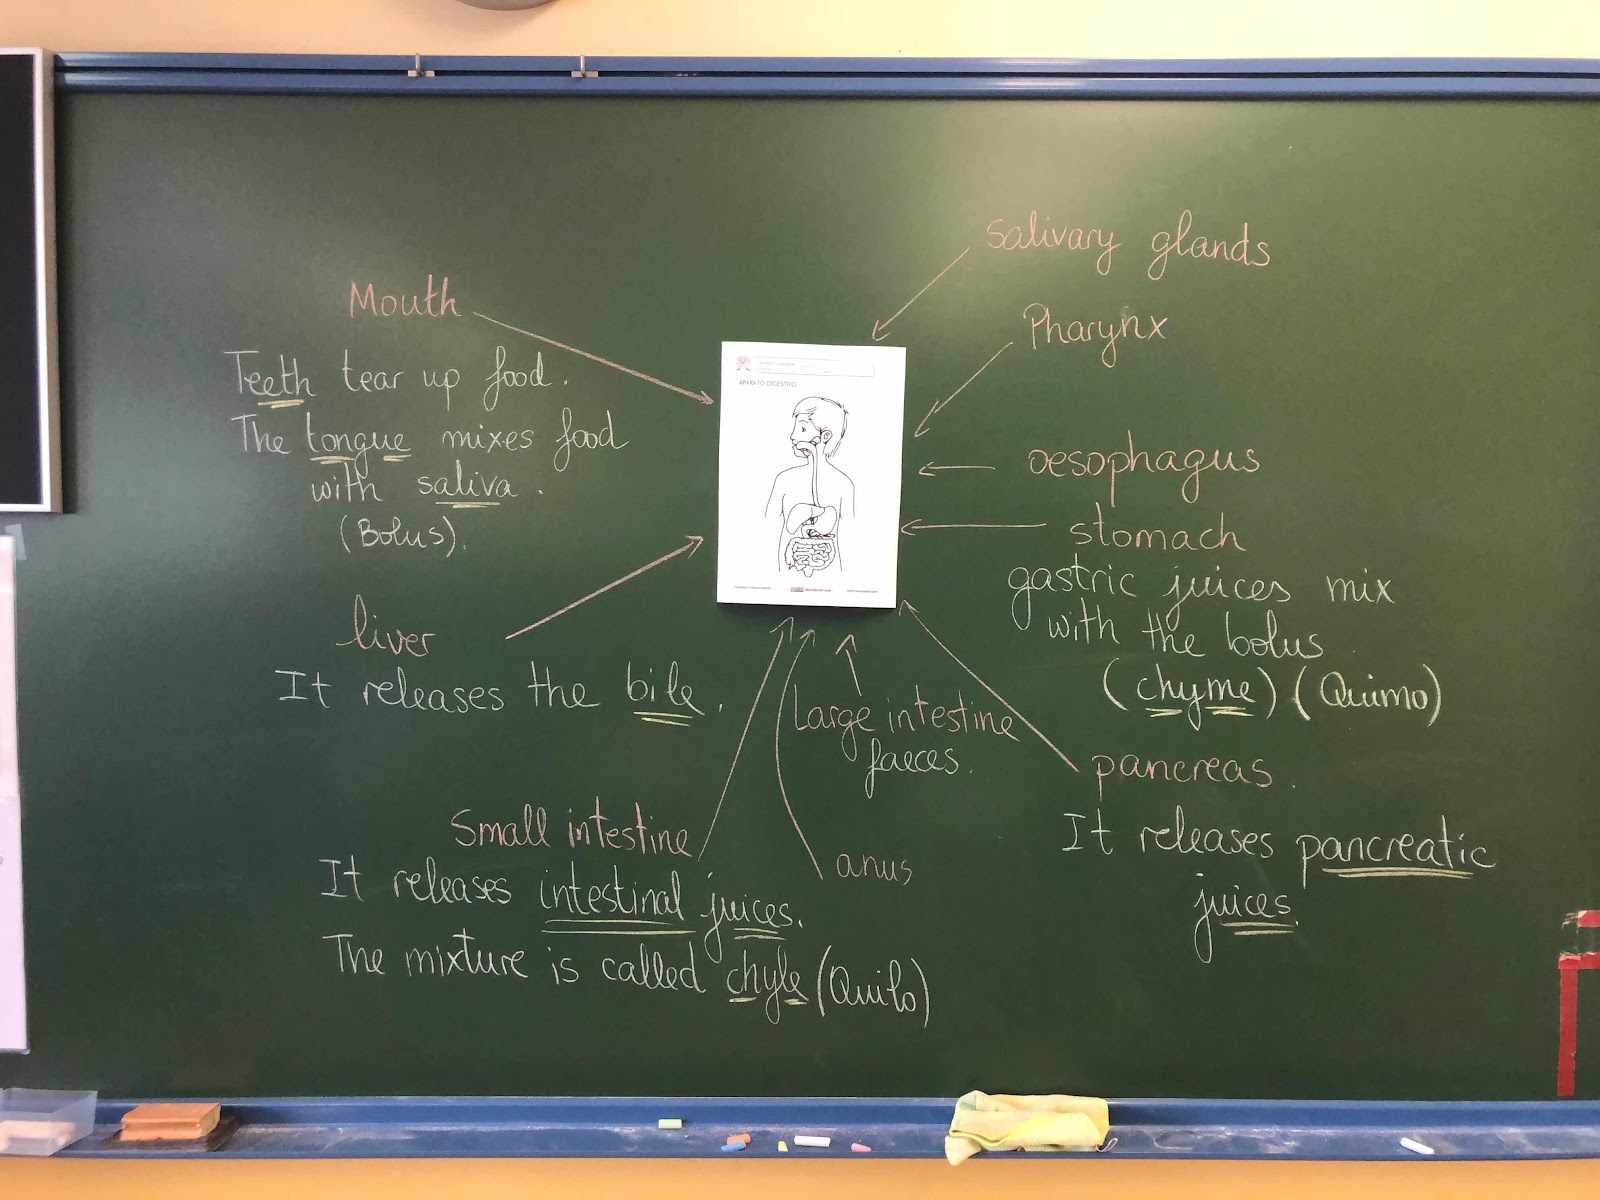 Salivary glands
Mouth
Pharynx
Teeth tear up food.
The tongue mixes food
with saliva.
(Bolus).
APARATO DIGESTIVO
oesophagus
stomach
gastric juices mix
with the bolus.
(chyme) (Quimo)
liver
It releases the bile.
Large intestine
faeces.
pancreas.
It releases pancreatic
juices.
Small intestine
It releases intestinal juices.
The mixture is called chyle (Quilo)
anus